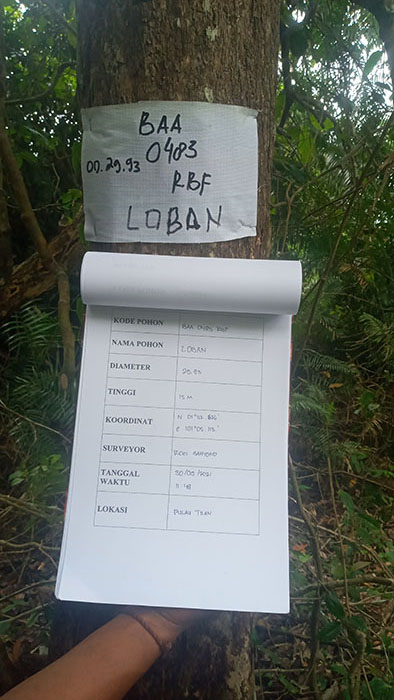 BAA
0483
00.29.93
RBF
LOBAN
KODE POHON BAA 0483 RBF
NAMA POHON LOBAN
DIAMETER 29.93
TINGGI 15 M
KOORDINAT
SURVEYOR
TANGGAL
WAKTU
LOKASI PULAU